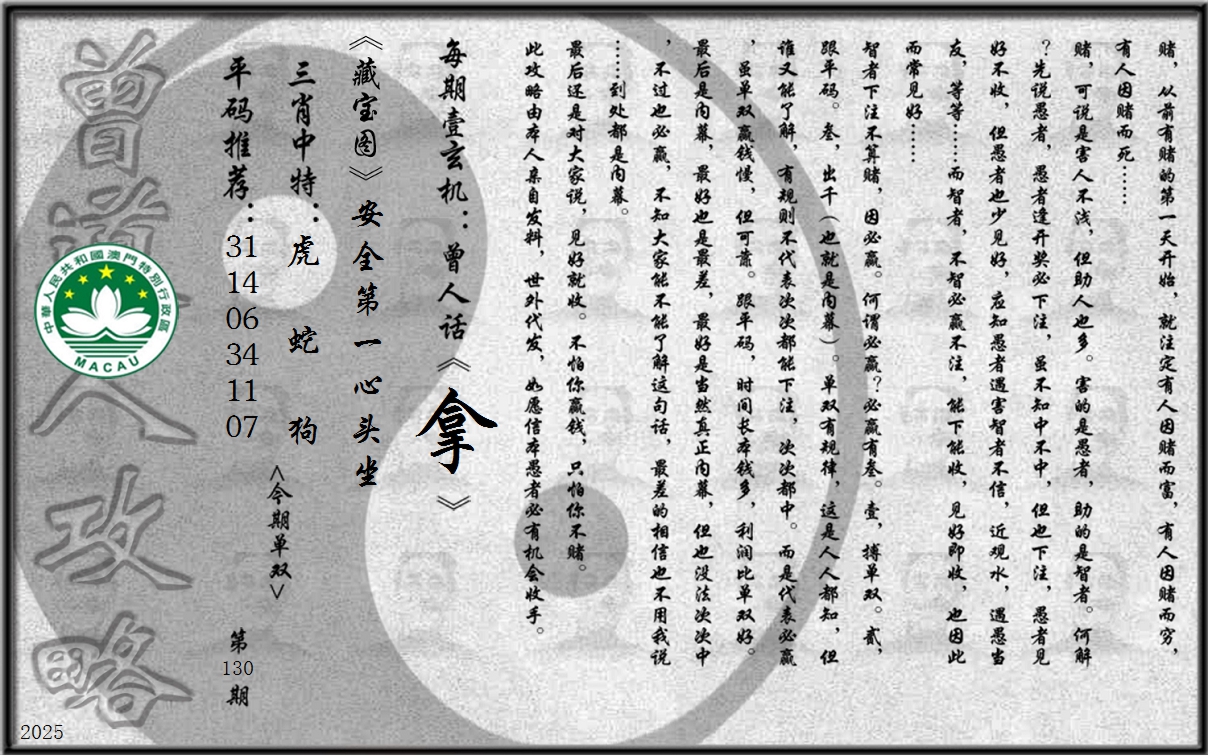 赌，从前有赌的第一天开始，就注定有人因赌而富，有人因赌而穷，
有人因赌而死……
赌，可说是害人不浅，但助人也多。害的是愚者，助的是智者。何解
？先说愚者，愚者逢开奖必下注，虽不知中不中，但也下注，愚者见
好不收，但愚者也少见好，应知愚者遇害智者不信，近观水，遇愚当
友，等等……而智者，不智必赢不注，能下能收，见好即收，也因此
而常见好……
智者下注不算赌，因必赢。何谓必赢？必赢有叁。壹，搏单双。贰，
跟平码。叁，出千（也就是内幕）。单双有规律，这是人人都知，但
谁又能了解，有规则不代表次次都能下注，次次都中。而是代表必赢
，虽单双赢钱慢，但可靠。跟平码，时间长本钱多，利润比单双好。
最后是内幕，最好也是最差，最好是当然真正内幕，但也没法次次中
，不过也必赢，不知大家能不能了解这句话，最差的相信也不用我说
……到处都是内幕。
最后还是对大家说，见好就收。不怕你赢钱，只怕你不赌。
此攻略由本人亲自发料，世外代发，如愿信本愚者必有机会收手。
每期壹玄机：曾人话《拿》
《藏宝图》安全第一心头坐
三肖中特：虎 蛇 狗
<今期单双>
平码推荐：31 14 06 34 11 07
第130期
曾道人攻略
中華人民共和國澳門特別行政區
MACAU
2025